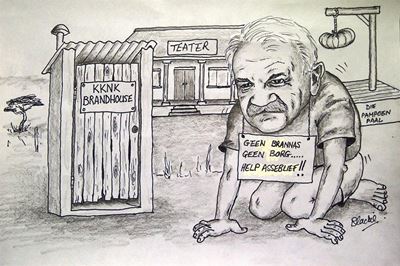 KKNK
BRANDHOUSE
TEATER
GEEN BRANNAS
GEEN BORG.....
HELP ASSEBLIEF!!
DIE
PAMPOEN
PAAL